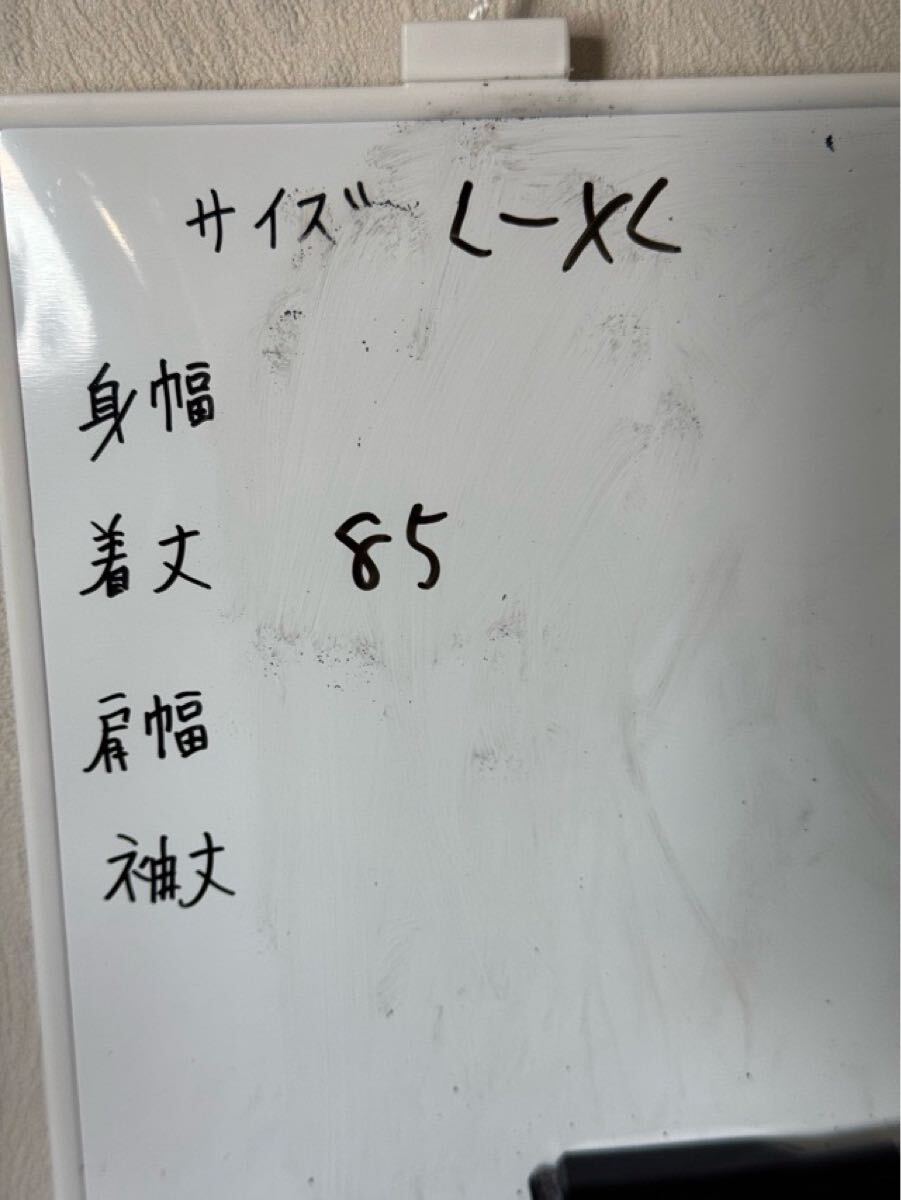 サイズ L-XL
身幅
着丈 85
肩幅
袖丈